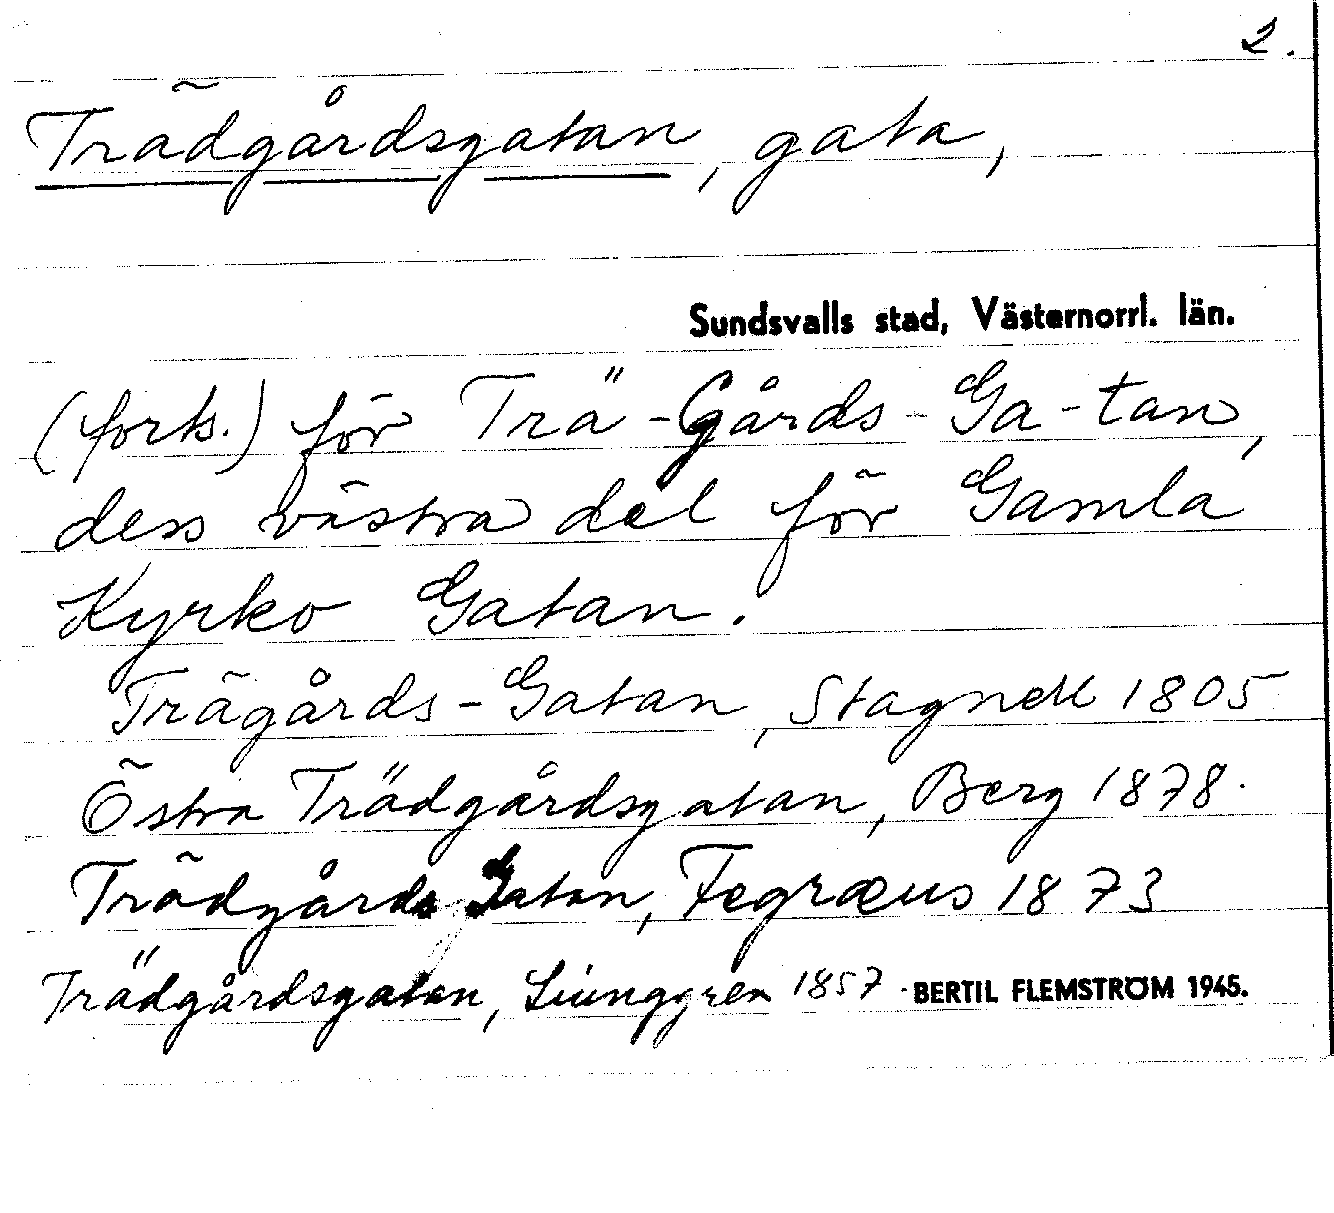 2.
Trädgårdsgatan, gata,
Sundsvalls stad, Västernorrl. län.
(forts.) för Trä-Gårds-Ga-tan,
dess västra del för Gamla
Kyrko Gatan.
Trägårds-Gatan, Stagnell 1805
Östra Trädgårdsgatan, Berg 1878.
Trädgårds Gatan, Fegræus 1873
Trädgårdsgatan, Liunggren 1857. BERTIL FLEMSTRÖM 1945.